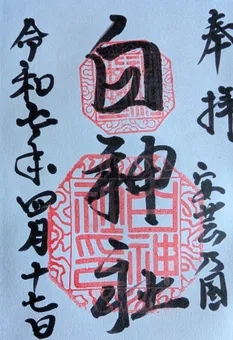 奉拝
安芸乃国
白神社
令和 年四月十七日
白神社印